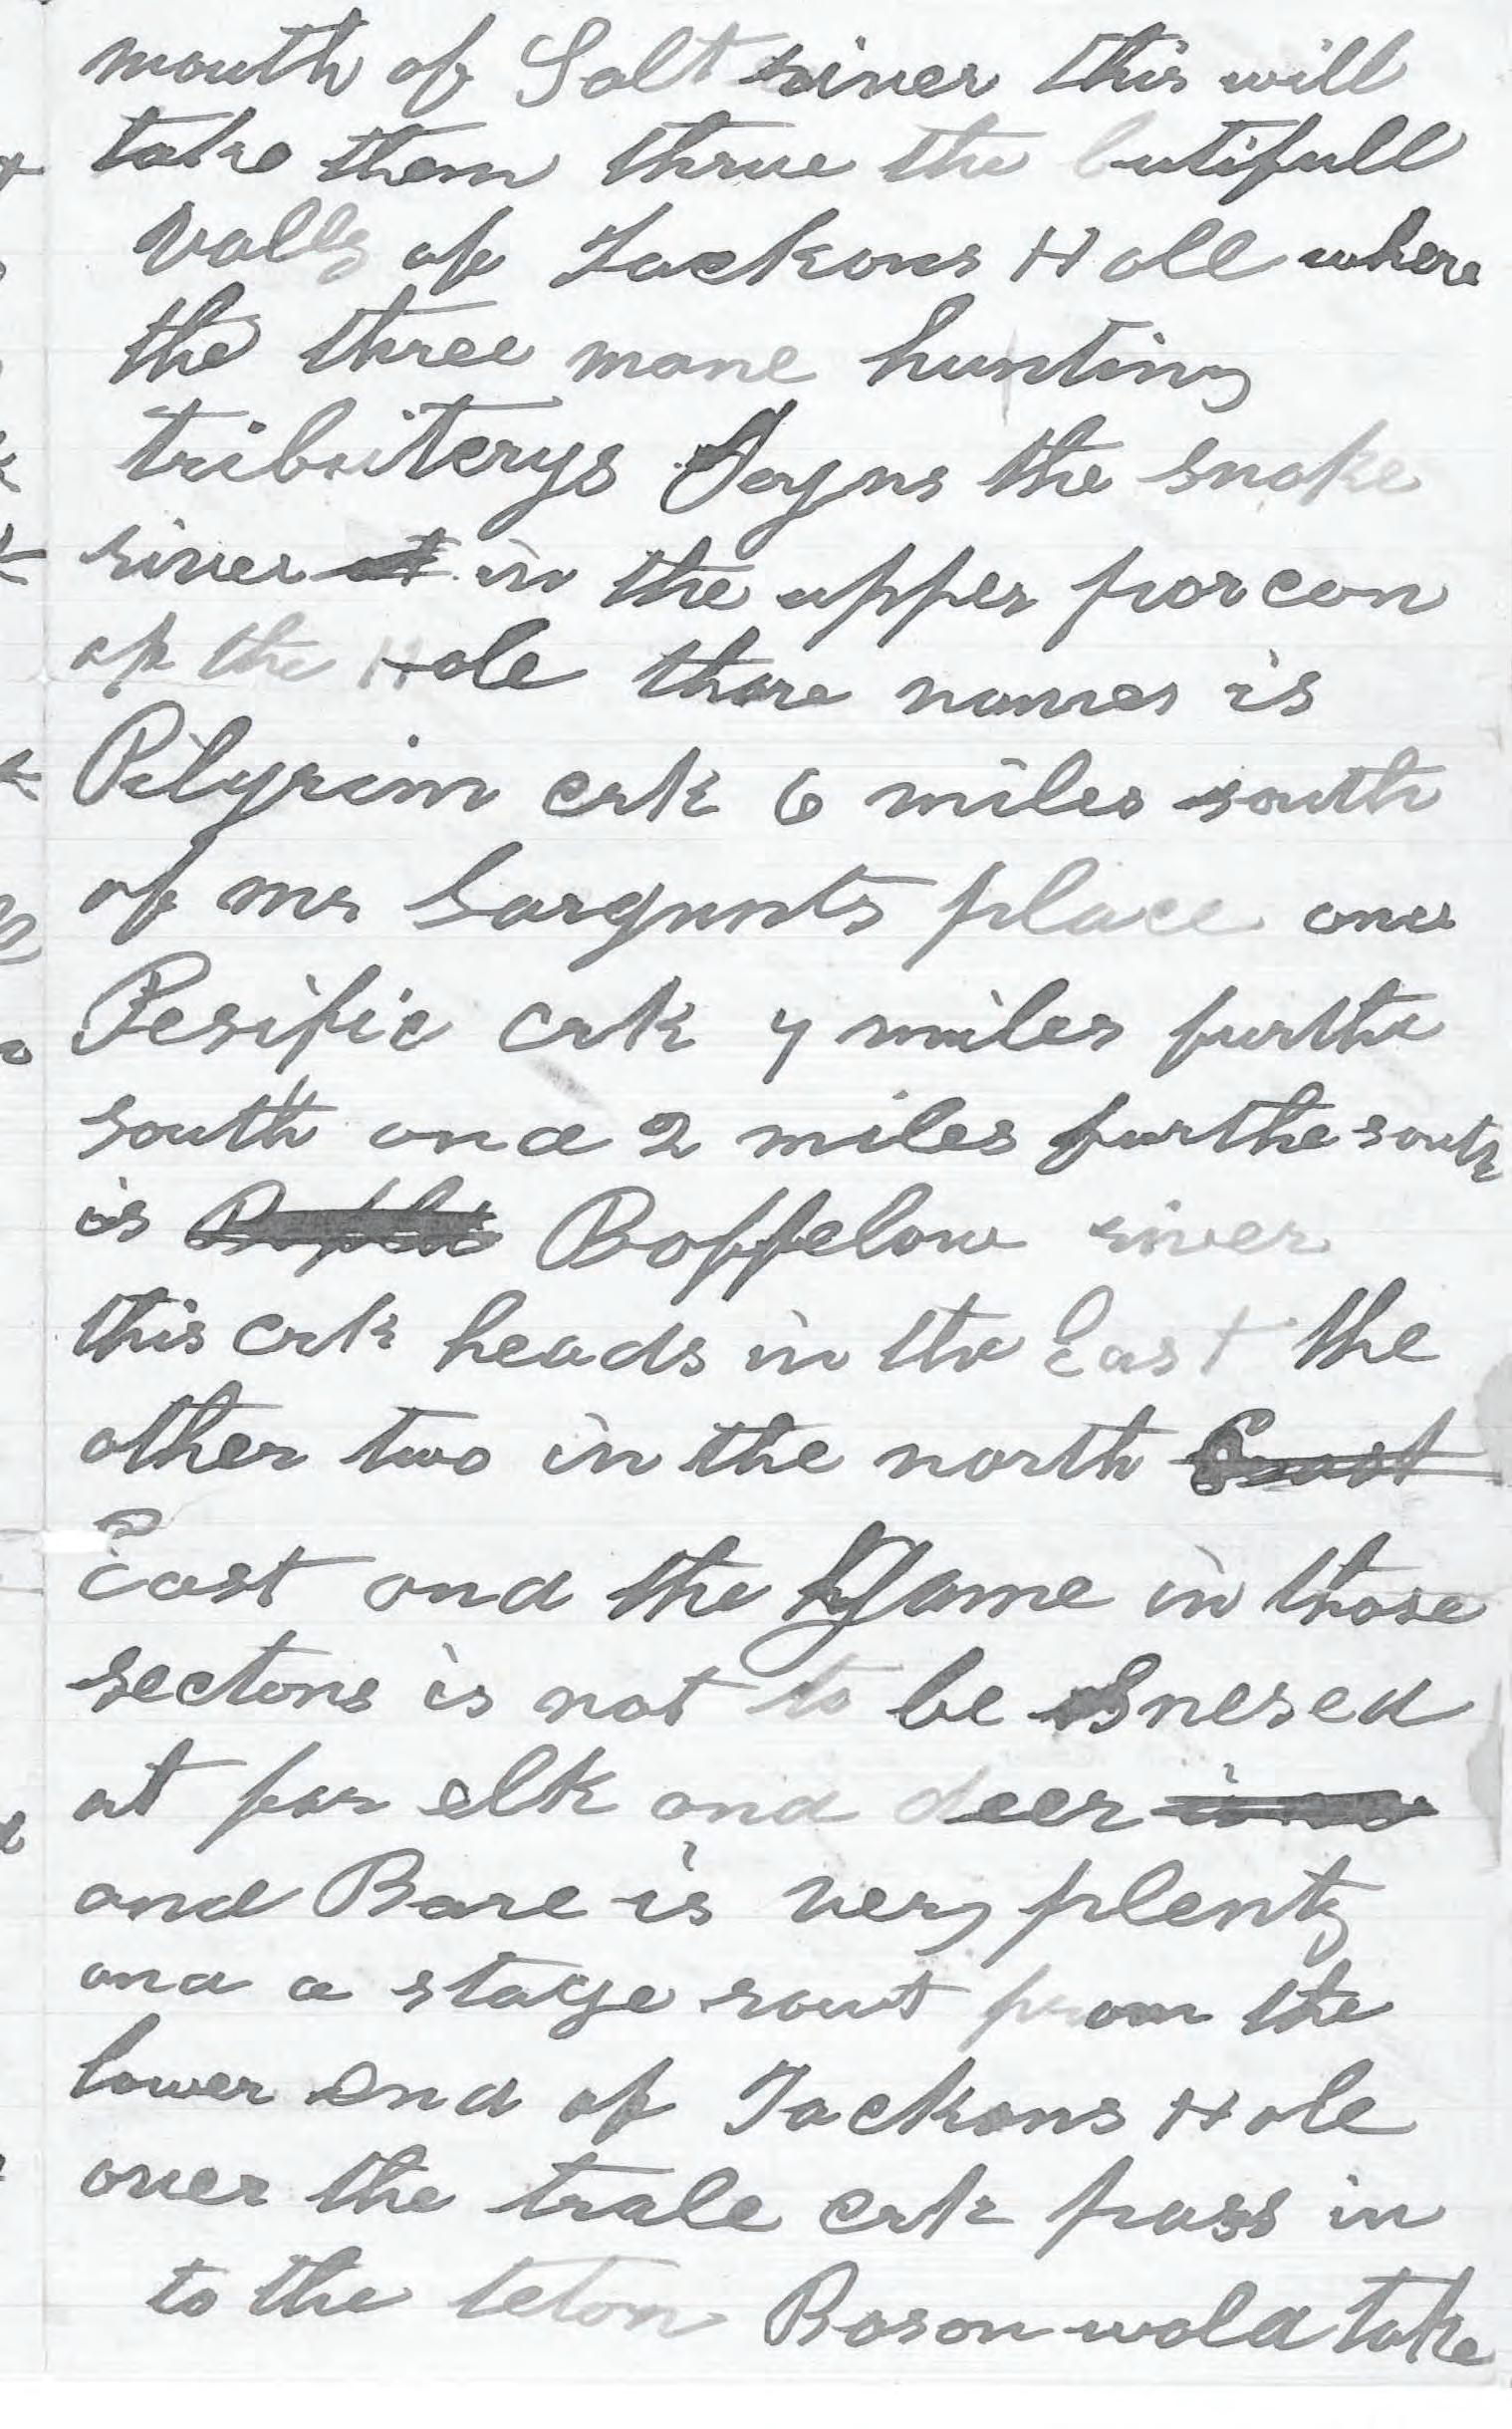 mouth of Salt river this will
take them thrue the butifull
vally of Jacksons Holl where
the three mane hunting
tribuiterys Joyns the snake
river at in the upper porcon
of the Hole thare names is
Pilgrim crk 6 miles south
of mr Sargunts place one
Pesific crk 7 miles furthe
south and 2 miles furthe south
is Boffelow river
this crk heads in the East the
other two in the north East
East and the Game in those
sectons is not to be Snesed
at for elk and deer
and Bare is very plenty
and a stage rout from the
lower End of Jacksons Hole
over the trale crk pass in
to the teton Bason wold take